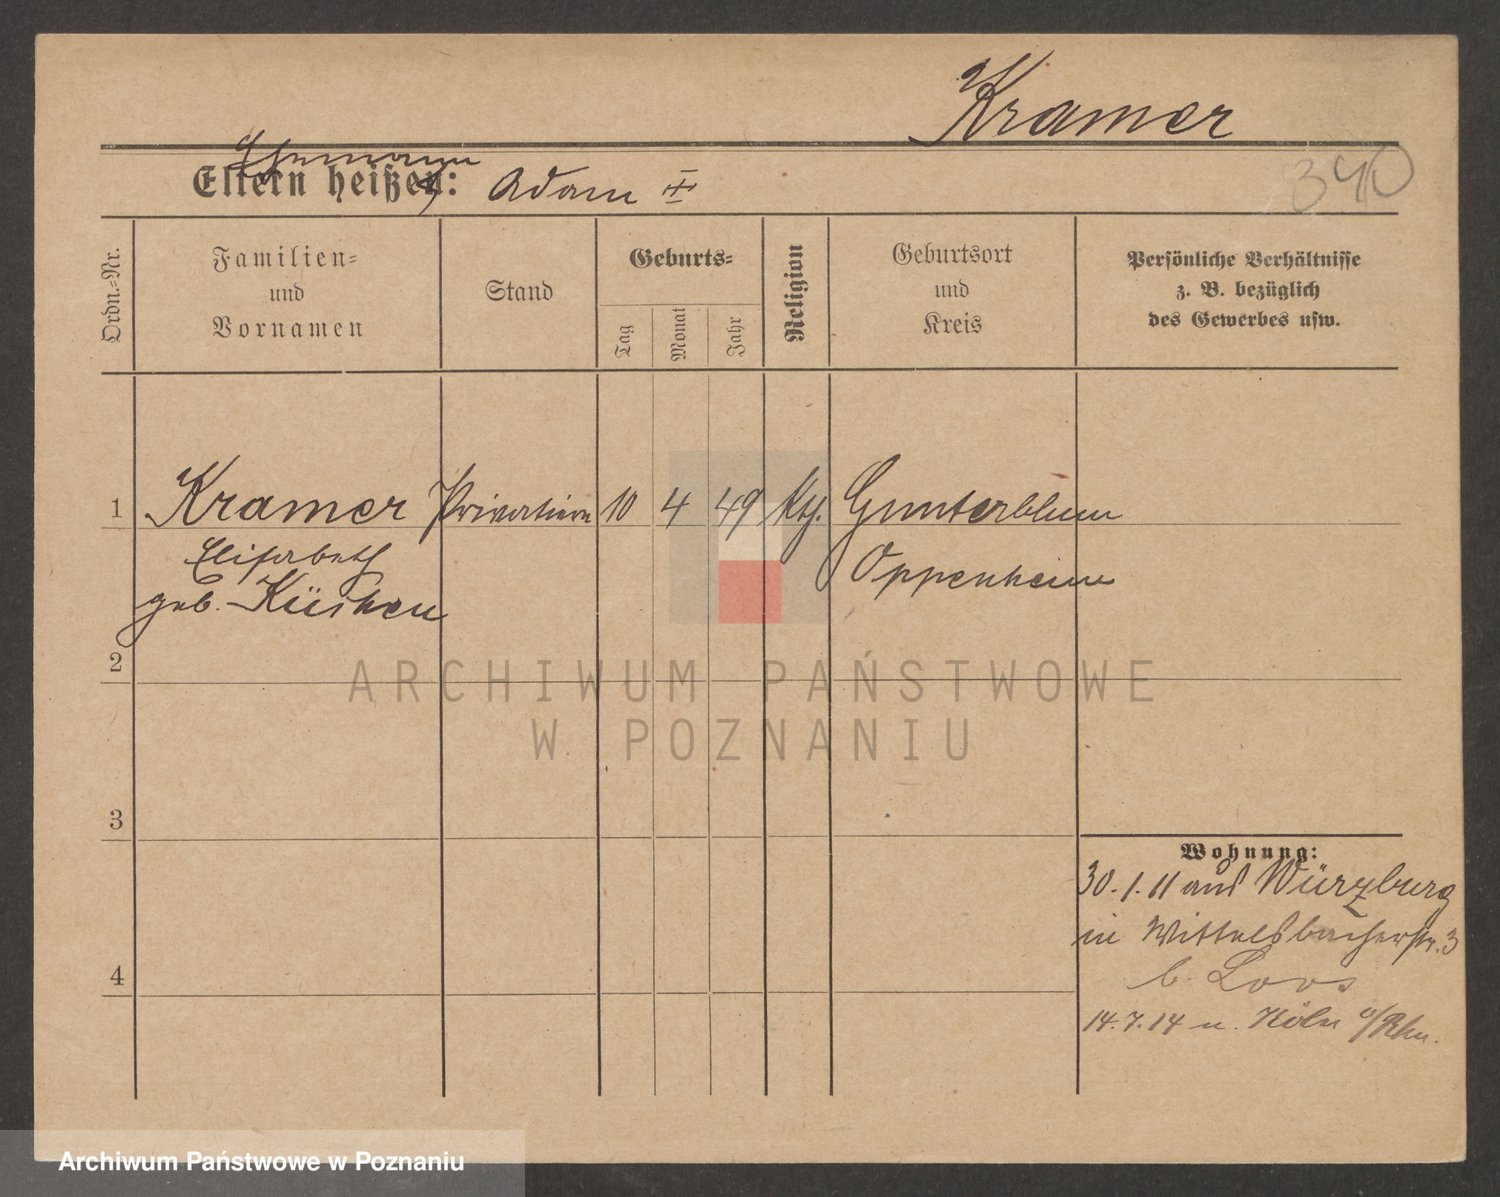 Kramer
Ehemann
Eltern heißen: Adam III
340
Ordn.-Nr.
Familien-
und
Vornamen
Stand
Geburts-
Tag
Monat
Jahr
Religion
Geburtsort
und
Kreis
Persönliche Verhältnisse
z. B. bezüglich
des Gewerbes usw.
1 Kramer Privatiere 10 4 49 Kth. Gunterblum
Elisabeth
Oppenheim
geb. Küsken
2
ARCHIWUM PAŃSTWOWE
W POZNANIU
3
Wohnung:
30. 1. 11 aus Würzburg
in Wittelsbacherstr. 3
4
b. Loos
14. 7. 14 n. Köln a/Rhn.
Archiwum Państwowe w Poznaniu